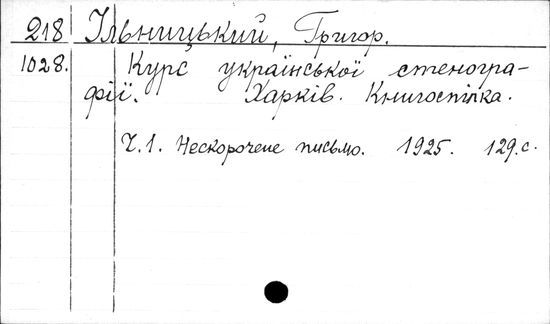 218 Ільницький, Григор.
1028. Курс української стеногра-
фії. Харків. Книгоспілка.
Ч.1. Нескорочене письмо. 1925. 129.с.